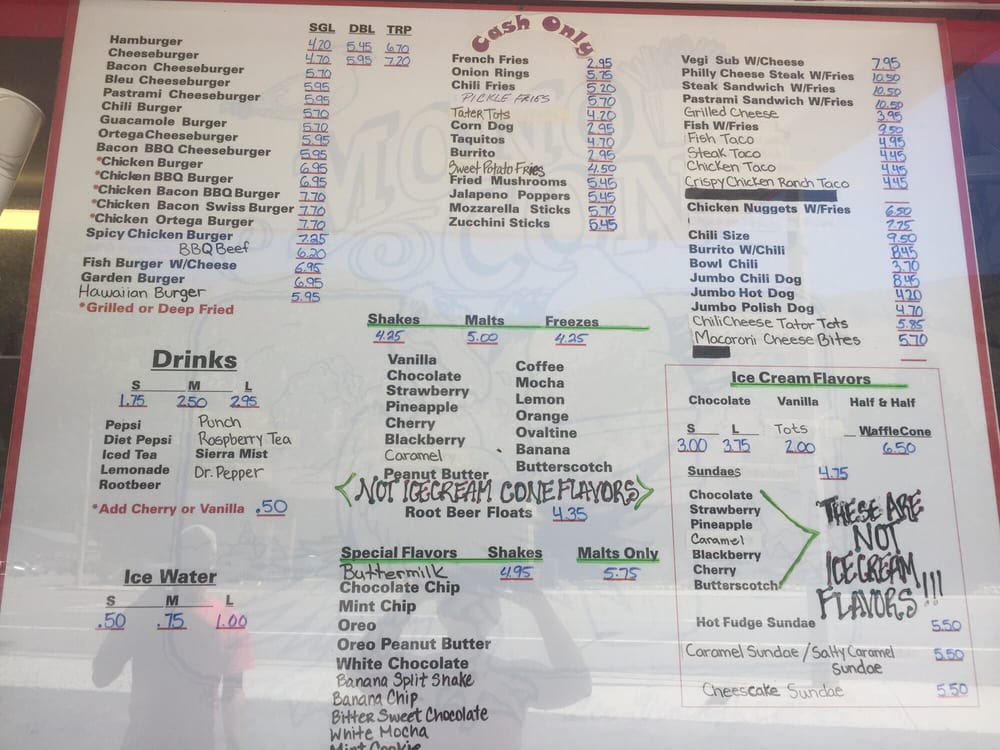 Cash Only
SGL DBL TRP
Hamburger 4.20 5.45 6.70
Cheeseburger 4.70 5.95 7.20
Bacon Cheeseburger 5.70
Bleu Cheeseburger 5.95
Pastrami Cheeseburger 5.95
Chili Burger 5.70
Guacamole Burger 5.70
Ortega Cheeseburger 5.95
Bacon BBQ Cheeseburger 5.95
*Chicken Burger 6.95
*Chicken BBQ Burger 6.95
*Chicken Bacon BBQ Burger 7.70
*Chicken Bacon Swiss Burger 7.70
*Chicken Ortega Burger 7.70
Spicy Chicken Burger 7.25
BBQ Beef 6.20
Fish Burger W/Cheese 6.95
Garden Burger 6.95
Hawaiian Burger 5.95
*Grilled or Deep Fried
French Fries 2.95
Onion Rings 5.75
Chili Fries 5.20
PICKLE FRIES 5.70
Tater Tots 4.20
Corn Dog 2.95
Taquitos 4.70
Burrito 2.95
Sweet Potato Fries 4.50
Fried Mushrooms 5.45
Jalapeno Poppers 5.45
Mozzarella Sticks 5.70
Zucchini Sticks 5.45
Vegi Sub W/Cheese 7.95
Philly Cheese Steak W/Fries 10.50
Steak Sandwich W/Fries 10.50
Pastrami Sandwich W/Fries 10.50
Grilled Cheese 3.95
Fish W/Fries 9.50
Fish Taco 4.95
Steak Taco 4.45
Chicken Taco 4.45
Crispy Chicken Ranch Taco 4.45
Chicken Nuggets W/Fries 6.50
7.75
Chili Size 9.50
Burrito W/Chili 8.45
Bowl Chili 3.70
Jumbo Chili Dog 8.45
Jumbo Hot Dog 4.20
Jumbo Polish Dog 4.70
Chili Cheese Tator Tots 5.85
Macaroni Cheese Bites 5.70
Drinks
S M L
1.75 2.50 2.95
Pepsi
Diet Pepsi
Iced Tea
Lemonade
Rootbeer
Punch
Raspberry Tea
Sierra Mist
Dr. Pepper
*Add Cherry or Vanilla .50
Ice Water
S M L
.50 .75 1.00
Shakes Malts Freezes
4.25 5.00 4.25
Vanilla
Chocolate
Strawberry
Pineapple
Cherry
Blackberry
Caramel
Peanut Butter
Coffee
Mocha
Lemon
Orange
Ovaltine
Banana
Butterscotch
NOT ICECREAM CONE FLAVORS
Root Beer Floats 4.35
Special Flavors Shakes Malts Only
Buttermilk 4.95 5.75
Chocolate Chip
Mint Chip
Oreo
Oreo Peanut Butter
White Chocolate
Banana Split Shake
Banana Chip
Bitter Sweet Chocolate
White Mocha
Mint Cookie
Ice Cream Flavors
Chocolate Vanilla Half & Half
S L Tots WaffleCone
3.00 3.75 2.00 6.50
Sundaes 4.75
Chocolate
Strawberry
Pineapple
Caramel
Blackberry
Cherry
Butterscotch
THESE ARE
NOT
ICECREAM
FLAVORS!!!
Hot Fudge Sundae 5.50
Caramel Sundae / Salty Caramel Sundae 5.50
Cheescake Sundae 5.50